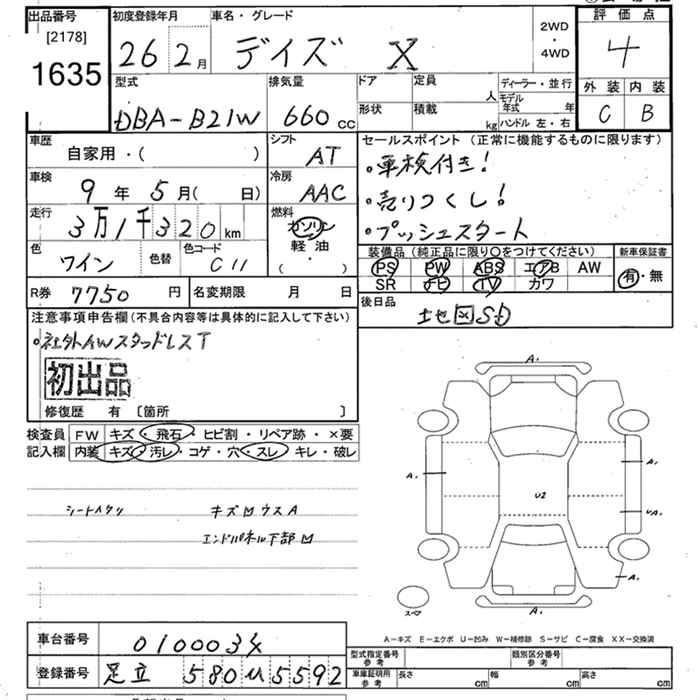 出品番号
[2178]
1635
初度登録年月 車名・グレード
26 2月 デイズ X
2WD
・
4WD
評価点
4
外装 内装
C B
型式 排気量
DBA-B21W 660 cc
ドア 定員 人
形状 積載 kg
ディーラー・並行
モデル年式 年
ハンドル 左・右
車歴 自家用・( )
シフト AT
車検 9年5月( 日)
冷房 AAC
走行 3万1千320km
燃料 ガソリン
軽油
・
( )
色 ワイン 色替 色コード C11
R券 7750円 名変期限 月 日
セールスポイント (正常に機能するものに限ります)
・車検付き!
・売りつくし!
・プッシュスタート
装備品 (純正品に限り○をつけてください) 新車保証書
PS PW ABS エアB AW 有・無
SR ナビ TV カワ
後日品
注意事項申告欄(不具合内容等は具体的に記入して下さい)
・社外AWスタッドレスT
初出品
修復歴 有 〔箇所 〕
検査員 FW キズ・飛石・ヒビ割・リペア跡・×要
記入欄 内装 キズ・汚レ・コゲ・穴・スレ・キレ・破レ
A.
A. A.
U2
A.
A.
スペア
A-キズ E-エクボ U-凹み W-補修跡 S-サビ C-腐食 XX-交換済
車台番号
登録番号 足立 580 5592
型式指定番号 参考 類別区分番号 参考
車庫証明用 参考 長さ cm 幅 cm 高さ cm